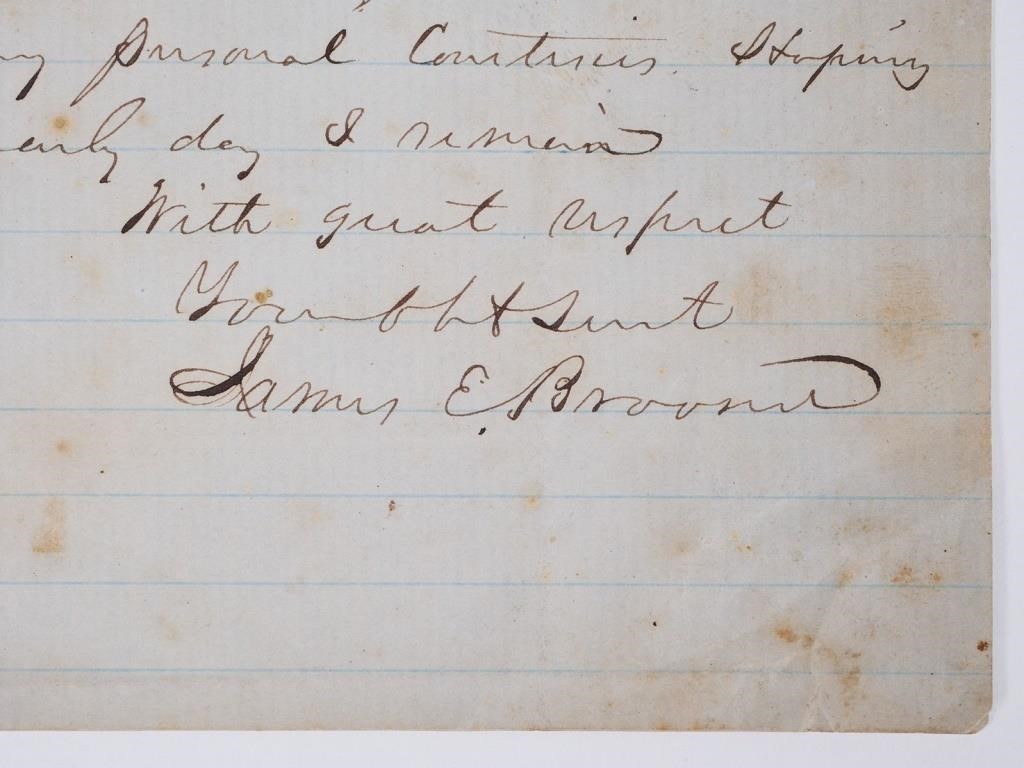 my personal Courtesies. Hoping
early day I remain
With great respect
Your obt Servt
James E. Broome